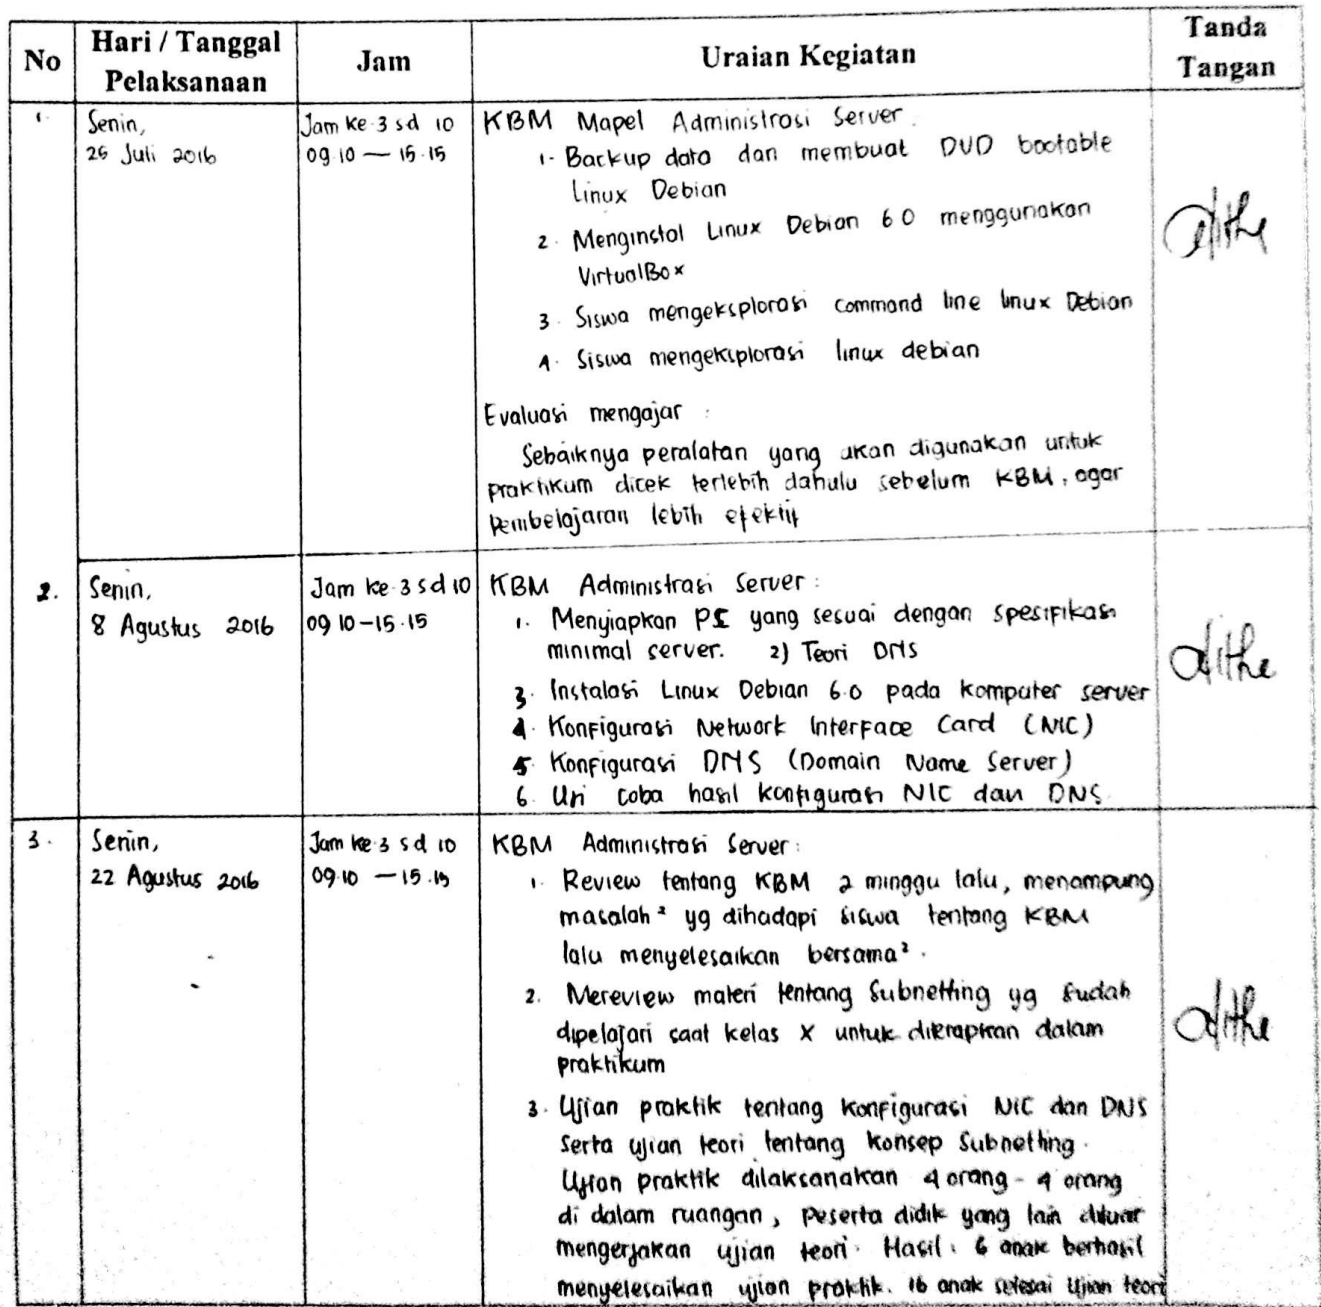 No
Hari / Tanggal
Pelaksanaan
Jam
Uraian Kegiatan
Tanda
Tangan
1.
Senin,
25 Juli 2016
Jam ke-3 sd 10
09.10 — 15.15
KBM Mapel Administrasi Server.
1. Backup data dan membuat DVD bootable
Linux Debian
2. Menginstal Linux Debian 6.0 menggunakan
VirtualBox
3. Siswa mengeksplorasi command line linux Debian
4. Siswa mengeksplorasi linux debian
Evaluasi mengajar :
Sebaiknya peralatan yang akan digunakan untuk
praktikum dicek terlebih dahulu sebelum KBM, agar
pembelajaran lebih efektif
2.
Senin,
8 Agustus 2016
Jam ke-3 sd 10
09.10 – 15.15
KBM Administrasi Server:
1. Menyiapkan PC yang sesuai dengan spesifikasi
minimal server. 2) Teori DNS
3. Instalasi Linux Debian 6.0 pada komputer server
4. Konfigurasi Network Interface Card (NIC)
5. Konfigurasi DNS (Domain Name Server)
6. Uri coba hasil konfigurasi NIC dan DNS.
3.
Senin,
22 Agustus 2016
Jam ke-3 sd 10
09.10 — 15.15
KBM Administrasi Server:
1. Review tentang KBM 2 minggu lalu, menampung
masalah² yg dihadapi siswa tentang KBM
lalu menyelesaikan bersama².
2. Mereview materi tentang Subnetting yg sudah
dipelajari saat kelas X untuk diterapkan dalam
praktikum
3. Ujian praktik tentang konfigurasi NIC dan DNS
serta ujian teori tentang konsep Subnetting.
Ujian praktik dilaksanakan 4 orang - 4 orang
di dalam ruangan, peserta didik yang lain diluar
mengerjakan ujian teori. Hasil: 6 anak berhasil
menyelesaikan ujian praktik. 16 anak selesai Ujian teori